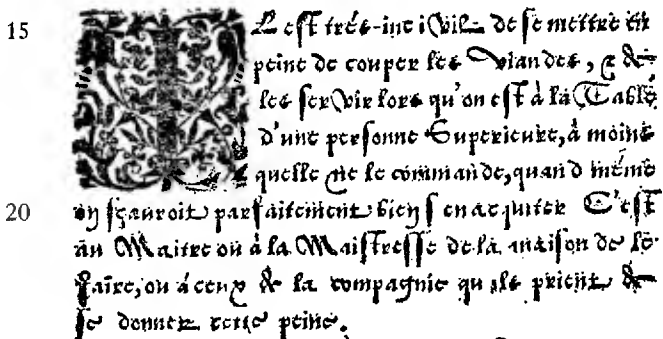 15 IL est trés-incivil de se mettre en
peine de couper les viandes, & de
les servir lors qu'on est à la Table
d'une personne Superieure, à moins
quelle ne le commande, quand méme
20 on sçauroit parfaitement bien s'en acquiter C'est
au Maitre ou à la Maistresse de la maison de le
faire, ou á ceux de la compagnie qu'ils prient de
se donner cette peine.